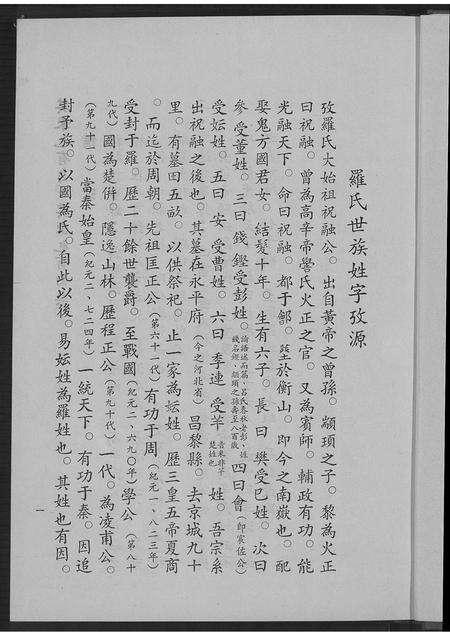 羅氏世族姓字攷源
攷羅氏大始祖祝融公。出自黃帝之曾孫。顓頊之子。黎為火正
曰祝融。曾為高辛帝嚳氏火正之官。又為賓師。輔政有功。能
光融天下。命曰祝融。都于鄶。塟於衡山。即今之南嶽也。配
娶鬼方國君女。結髮十年。生有六子。長曰樊受巳姓。次曰
參受董姓。三曰錢鏗受彭姓。四曰會(即求佐公)
受妘姓。五曰安受曹姓。六曰季連受羋姓。吾宗系
出祝融之後也。其墓在永平府(今之河北省)昌黎縣。去京城九十
里。有墓田五畝。以供祭祀。止一家為妘姓。歷三皇五帝夏商
。而迄於周朝。先祖匡正公(第六十一代)有功于周(紀元一、八二三年)
受封于羅。歷二十餘世襲爵。至戰國(紀元二、六九〇年)學公(第八十
九代)國為楚併。隱逸山林。歷程正公(第九十代)一代。為凌甫公。
(第九十一代)當秦始皇(紀元二、七二四年)一統天下。有功于秦。因追
封予族。以國為氏。自此以後。易妘姓為羅姓也。其姓也有因。
一